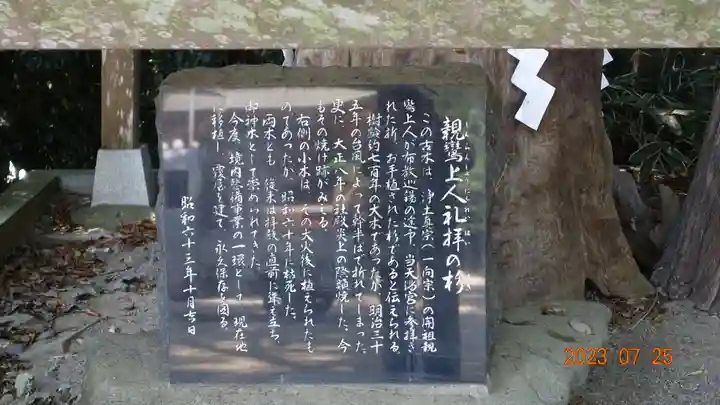 親鸞上人礼拝の杉
この古木は、浄土真宗(一向宗)の開祖親
鸞上人が布教巡錫の途中、当天満宮に参拝さ
れた折、お手植された杉であると伝えられる。
樹齢約七百年の大木であったが、明治三十
五年の台風によって幹半ばで折れてしまった。
更に、大正八年の社殿炎上の際類焼した。今
もその焼け跡がみえる。
右側の小木は、その大火後に植えられたも
のであったが、昭和六十年に枯死した。
両木とも、従来は拝殿の直前に聳え立ち、
御神木として崇められてきた。
今度、境内整備事業の一環として、現在地
に移植し、覆屋を建て、永久保存を図る。
昭和六十三年十月吉日
2023 07 25